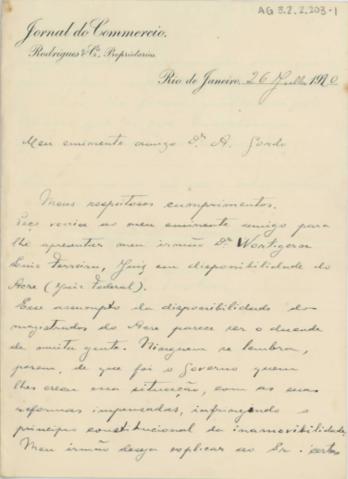 AG 3.2.2.203-1
Jornal do Commercio.
Rodrigues & Cª, Proprietarios
Rio de Janeiro, 26 Julho 1920
Meu eminente amigo Dr. A. Gordo
Meus respeitosos cumprimentos.
Peço venia ao meu eminente amigo para
lhe apresentar meu irmão Dr.
Luiz Ferreira, Juiz em disponibilidade do
Acre (Juiz Federal).
Esse assumpto da disponibilidade dos
magistrados do Acre parece ser o duende
de muita gente. Ninguem se lembra,
porem, de que foi o Governo quem
lhes creou essa situação, com as suas
reformas impensadas, infringindo o
principio constitucional da inamovibilidade.
Meu irmão deseja explicar ao Sr. certos